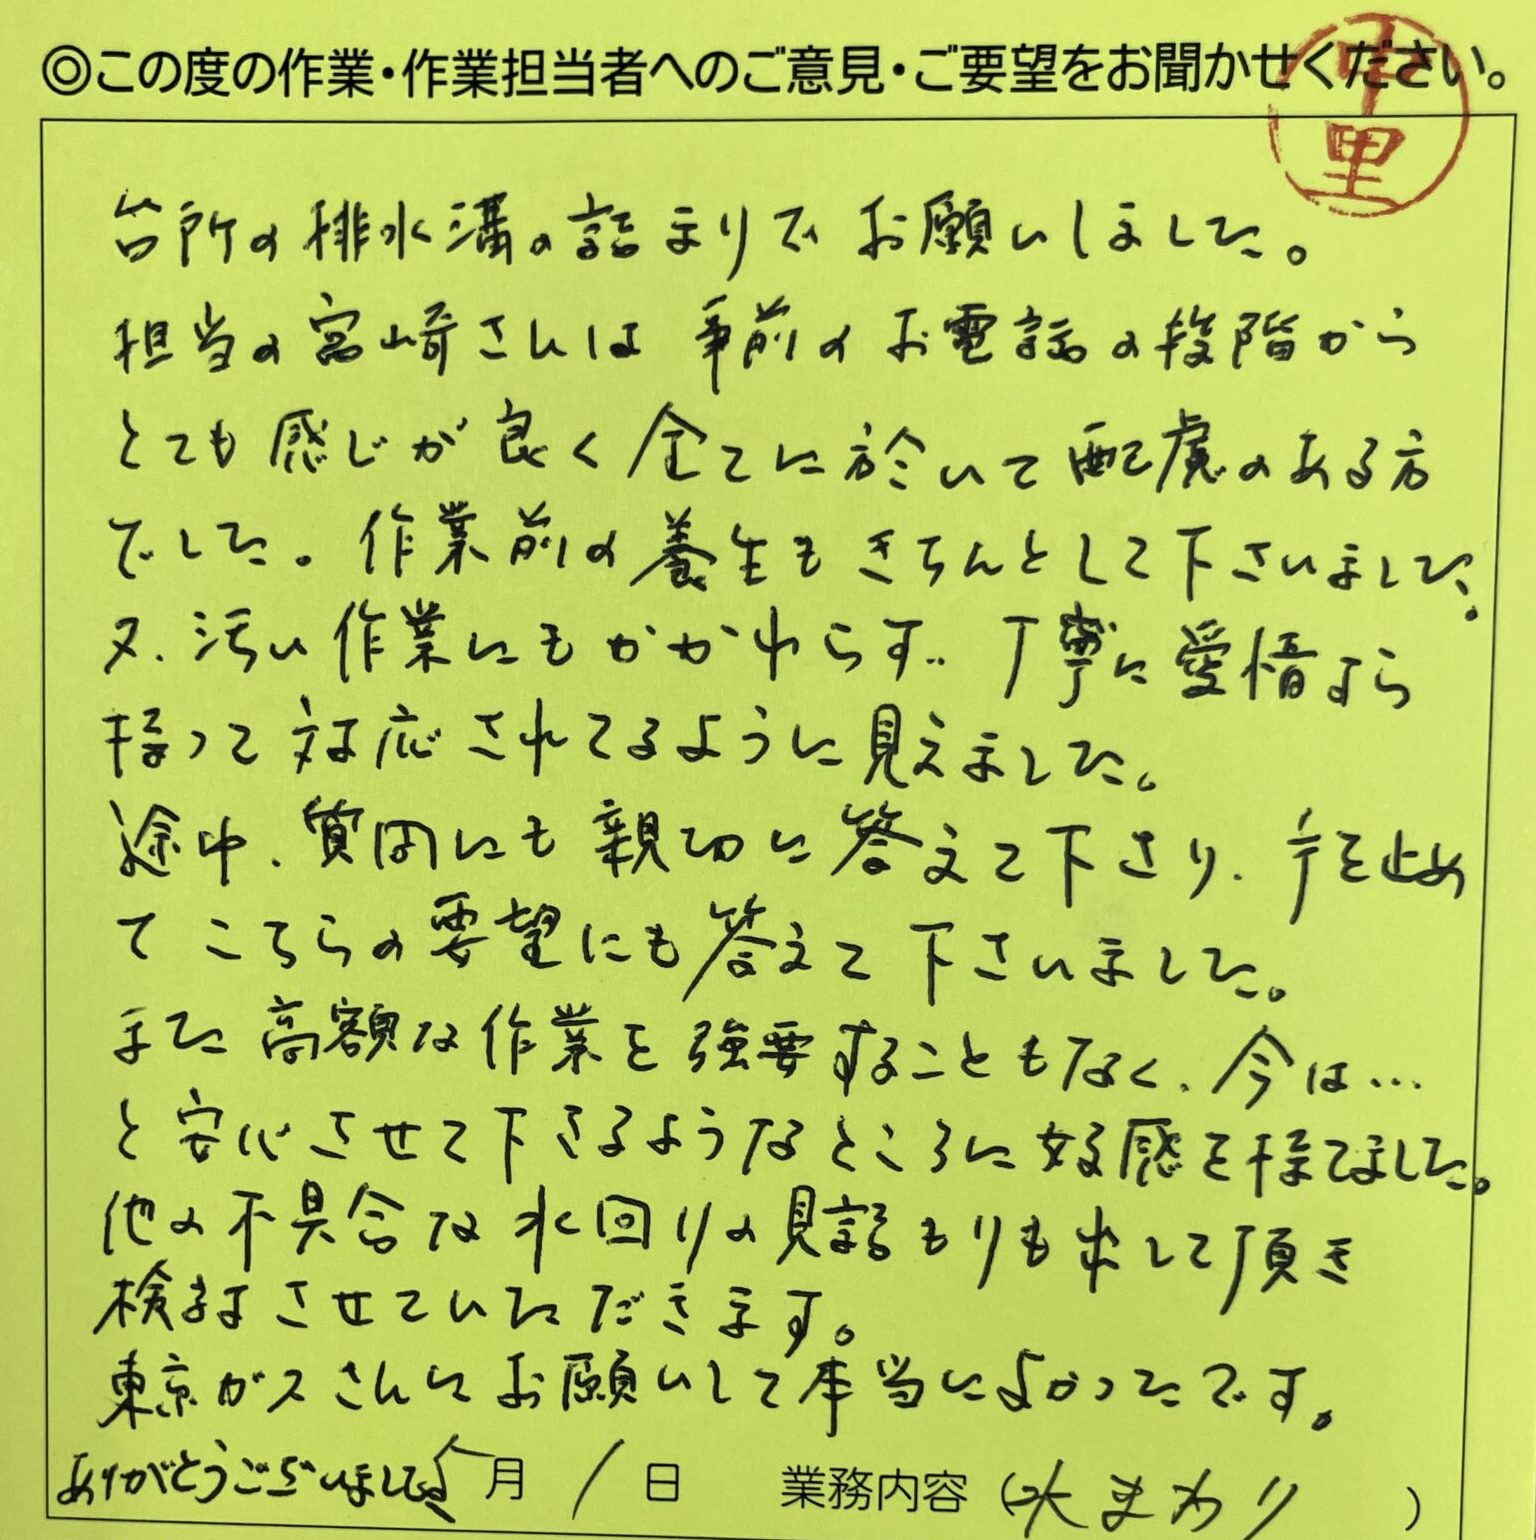 ◎この度の作業・作業担当者へのご意見・ご要望をお聞かせください。
中里
台所の排水溝の詰まりで お願いしました。
担当の宮崎さんは 事前の お電話の段階から
とても 感じが 良く 全てに於いて 配慮のある方
でした。作業前の養生も きちんとして下さいました。
又、汚い作業にもかかわらず、丁寧に愛情すら
持って 対応されてるように見えました。
途中、質問にも 親切に答えて下さり、手を止め
て こちらの要望にも答えて 下さいました。
また 高額な作業を強要することもなく、今は…
と安心させて下さるようなところに好感を持てました。
他の不具合な水回りの見積もりも出して頂き
検討させていただきます。
東京ガスさんに お願いして本当によかったです。
ありがとうございました 5月 1日 業務内容 (水まわり )